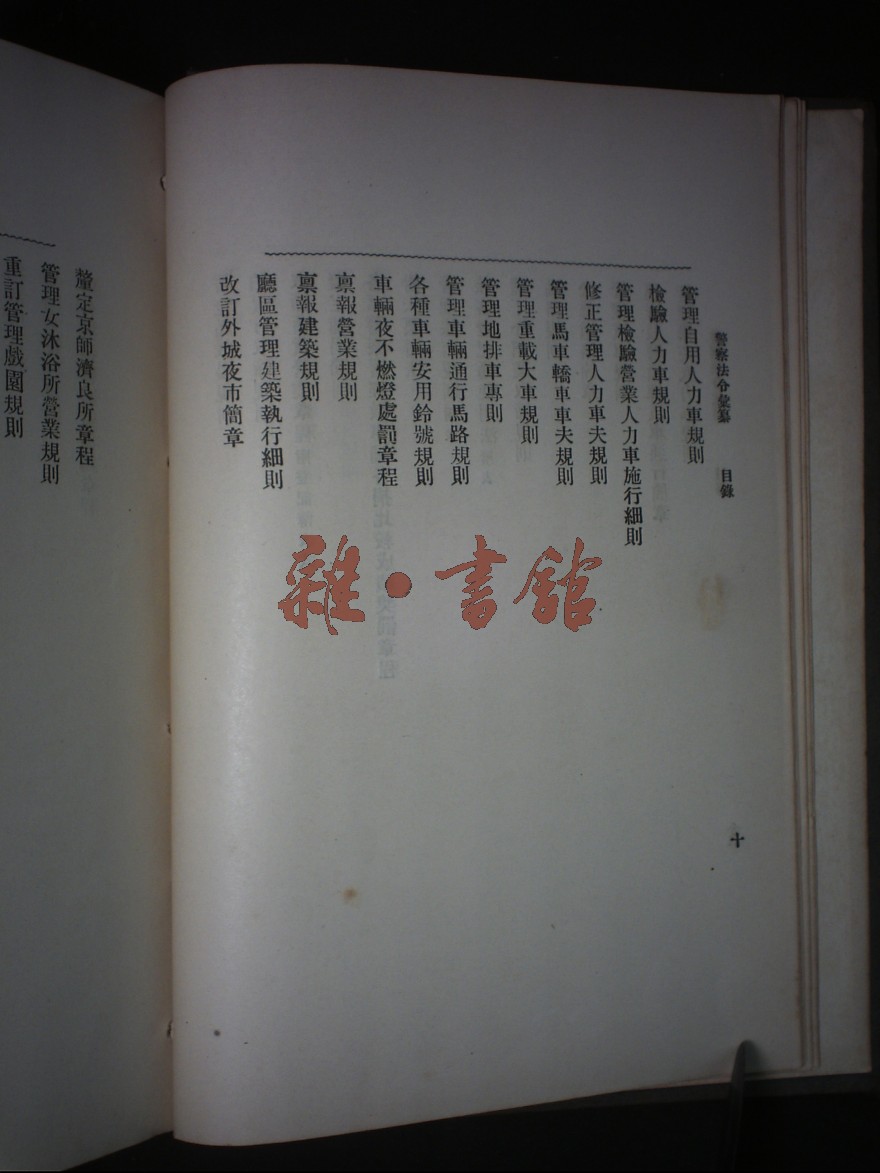 警察法令彙纂 目錄
管理自用人力車規則
檢驗人力車規則
管理檢驗營業人力車施行細則
修正管理人力車夫規則
管理馬車轎車車夫規則
管理重載大車規則
管理地排車專則
管理車輛通行馬路規則
各種車輛安用鈴號規則
車輛夜不燃燈處罰章程
禀報營業規則
禀報建築規則
廳區管理建築執行細則
改訂外城夜市簡章
十
釐定京師濟良所章程
管理女沐浴所營業規則
重訂管理戲園規則
雜·書館